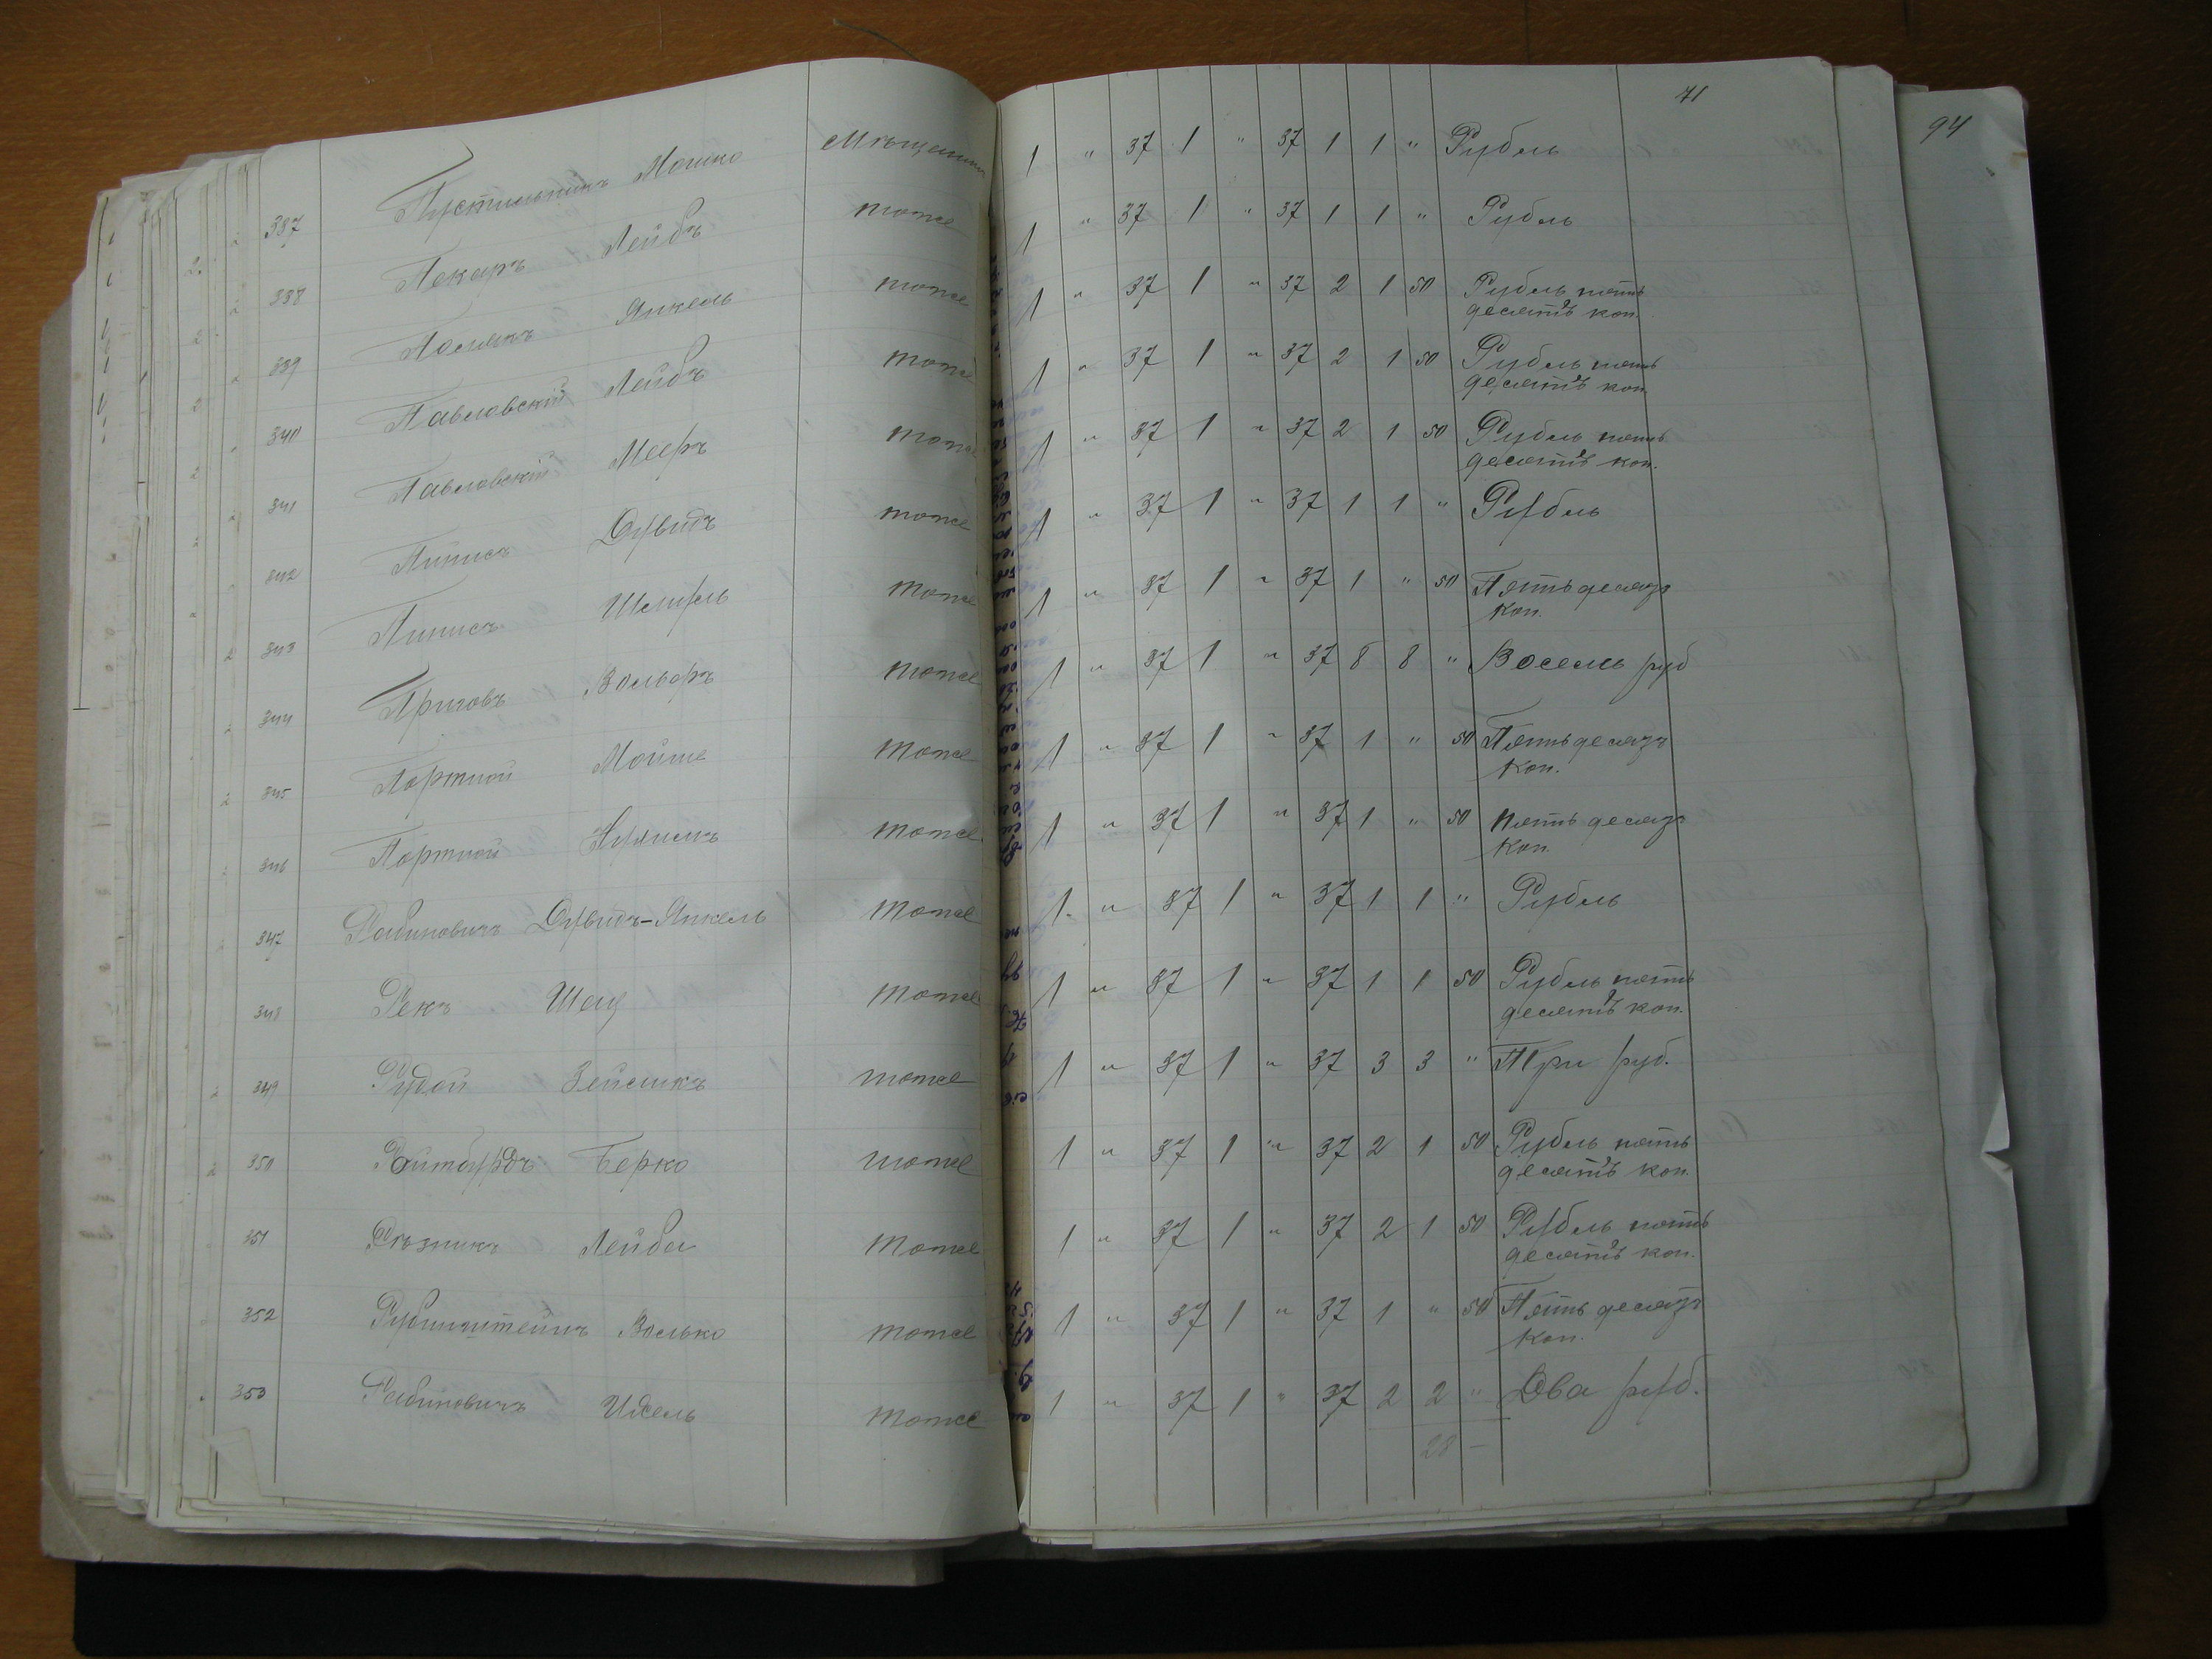 71
94
337 Пустильникъ Мошко Мѣщанинъ 1 " 37 1 " 37 1 1 " Рубль
338 Пекаръ Лейбъ тоже 1 " 37 1 " 37 1 1 " Рубль
339 Полякъ Янкель тоже 1 " 37 1 " 37 2 1 50 Рубль пять
десятъ коп.
340 Павловскій Лейбъ тоже 1 " 37 1 " 37 2 1 50 Рубль пять
десятъ коп.
341 Павловскій Мееръ тоже 1 " 37 1 " 37 2 1 50 Рубль пять
десятъ коп.
342 Пинисъ Дувидъ тоже 1 " 37 1 " 37 1 1 " Рубль
343 Пинисъ тоже 1 " 37 1 " 37 1 " 50 Пятьдесятъ
коп.
344 Приговъ Вольфъ тоже 1 " 37 1 " 37 8 8 " Восемь руб
345 Портной Мойше тоже 1 " 37 1 " 37 1 " 50 Пятьдесятъ
коп.
346 Портной тоже 1 " 37 1 " 37 1 " 50 Пятьдесятъ
коп.
347 Рабиновичъ Дувидъ-Янкель тоже 1 " 37 1 " 37 1 1 " Рубль
348 Рекъ тоже 1 " 37 1 " 37 1 1 50 Рубль пять
десятъ коп.
349 Рудой Зейликъ тоже 1 " 37 1 " 37 3 3 " Три руб.
350 Ройтбурдъ Берко тоже 1 " 37 1 " 37 2 1 50 Рубль пять
десятъ коп.
351 Рѣзникъ Лейба тоже 1 " 37 1 " 37 2 1 50 Рубль пять
десятъ коп.
352 Рубинштейнъ Волько тоже 1 " 37 1 " 37 1 " 50 Пятьдесятъ
коп.
353 Рабиновичъ Идель тоже 1 " 37 1 " 37 2 2 " Два руб.
28 –